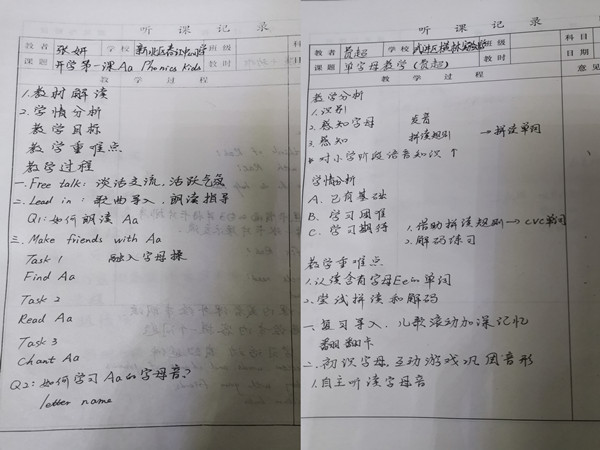 听课记录
教者 张妍 学校 新北区春江中心小学 班级 科
课题 开学第一课Aa Phonics Kids 教时 日
教学过程
1.教材解读
2.学情分析
教学目标
教学重难点
教学过程
一.Free talk：谈话交流,活跃气氛
二.Lead in：歌曲导入,朗读指导
Q1:如何朗读 Aa
三.Make friends with Aa
Task 1 融入字母操
Find Aa
Task 2
Read Aa
Task 3
Chant Aa
Q2:如何学习Aa的字母音?
letter name
听课记录
教者 贲超 学校 武进区 实验 班级 科目
课题 单字母教学(贲超) 教时 日期
教学过程 意见
教学分析
1.识别
2.感知字母 发音
3.感知 拼读规则 →拼读单词
*对小学阶段语音知识↑
学情分析
A.已有基础
B.学习困难
C.学习期待 1.借助拼读规则→CVC单词
2.解码练习
教学重难点
1.认读含有字母Ee的单词
2.尝试拼读和解码
一.复习导入,儿歌滚动加深记忆
翻翻卡
二.初识字母,互动游戏巩固音形
1.自主听读字母音